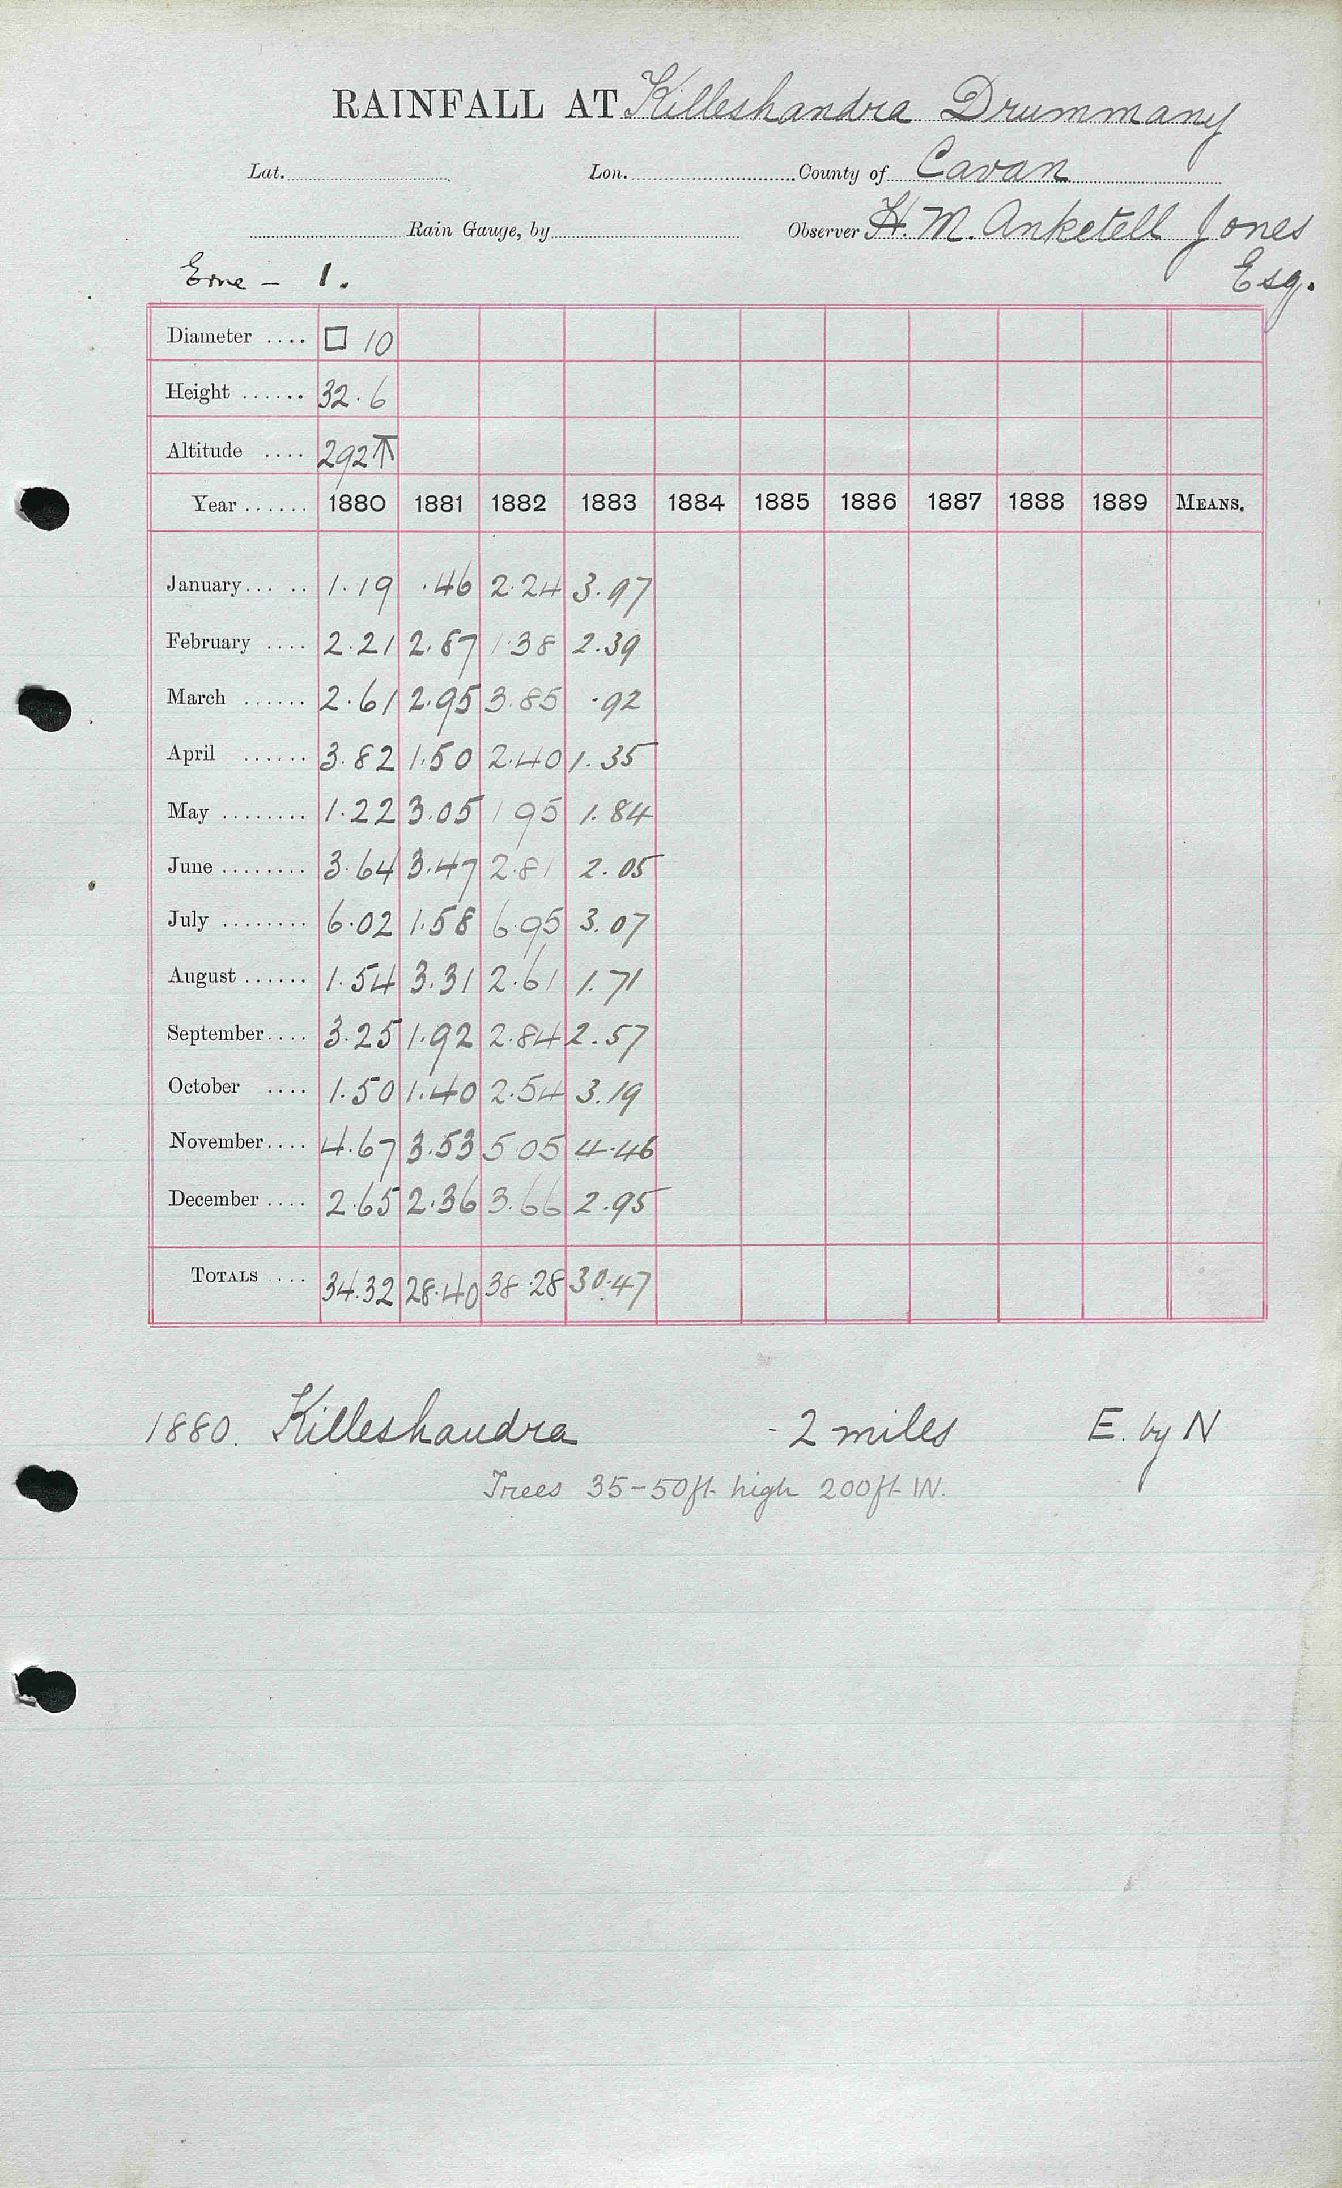 RAINFALL AT Killeshandra Drummany
Lat. Lon. County of Cavan
Rain Gauge, by Observer H. M. Anketell Jones
Erne - 1. Esq.
Diameter .... □ 10
Height ...... 32.6
Altitude .... 292 ⊼
Year ...... 1880 1881 1882 1883 1884 1885 1886 1887 1888 1889 MEANS.
January... .. 1.19 .46 2.24 3.97
February .... 2.21 2.87 1.38 2.39
March ...... 2.61 2.95 3.85 .92
April ...... 3.82 1.50 2.40 1.35
May ........ 1.22 3.05 1 95 1.84
June ........ 3.64 3.47 2.81 2.05
July ........ 6.02 1.58 6.95 3.07
August ...... 1.54 3.31 2.61 1.71
September.... 3.25 1.92 2.84 2.57
October .... 1.50 1.40 2.54 3.19
November.... 4.67 3.53 5 05 4.46
December .... 2.65 2.36 3.66 2.95
TOTALS .... 34.32 28.40 38.28 30.47
1880. Killeshandra - 2 miles E. by N
Trees 35-50ft high 200ft W.